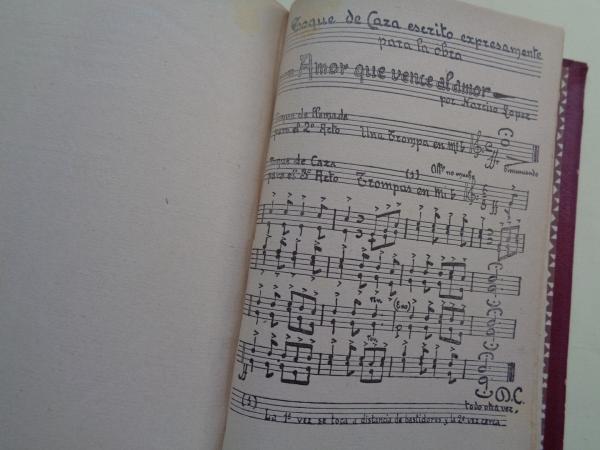 Toque de Caza escrito expresamente
para la obra
Amor que vence al amor
por Narciso Lopez
Toque de llamada
para el 2º Acto Una Trompa en Mi b
Toque de Caza
para el 3er Acto (1) Trompas en Mi b
D.C.
todo otra vez.
(1)
La 1ª vez se toca a distancia de bastidores y la 2ª vez cerca